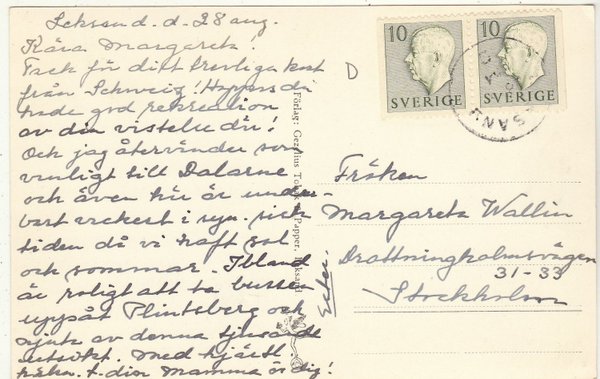 Leksand d. 28 aug.
Kära Margareta!
Tack för ditt trevliga kort
från Schweiz! Hoppas du
hade god rekreation
av din vistelse där!
Och jag återvänder som
vanligt till Dalarne
och även här är under-
bart vackert i syn.
tiden då vi haft sol
och sommar. Ibland
är roligt att ta bussen
uppåt Plintsberg och
njuta av denna tjusande
utsikt. Med hjärtl.
t. din Mamma o. dig!
Ester.
D
10 10
SVERIGE SVERIGE
Förlag: Gezelius Papper, Leksand
Fröken
Margareta Wallin
Drottningholmsvägen
31-33
Stockholm